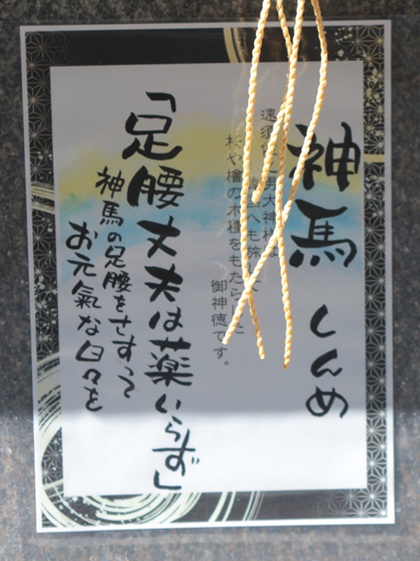 神馬 しんめ
男大神様は
国へも旅
杉や檜の木種をもたらした
御神徳です。
「足腰丈夫は薬いらず」
神馬の足腰をさすって
お元氣な日々を